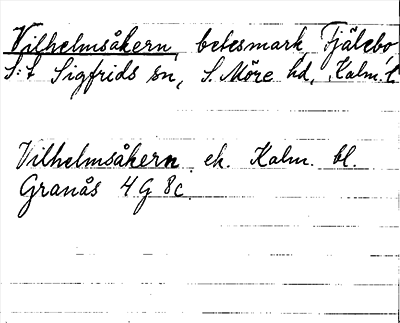 Vilhelmsåkern, betesmark, Fjälebo,
S:t Sigfrids sn, S. Möre hd, Kalm. l.
Vilhelmsåkern. ek. Kalm. bl.
Granås 4 G 8c.